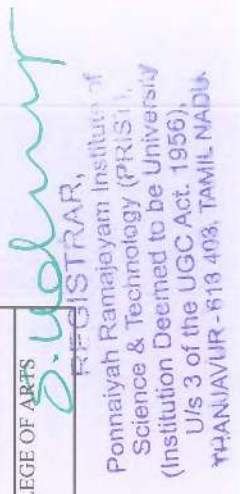 EGE OF ARTS
REGISTRAR,
Ponnaiyah Ramajeyam Institute of
Science & Technology (PRIST),
(Institution Deemed to be University
U/s 3 of the UGC Act. 1956),
THANJAVUR - 613 403, TAMIL NADU.